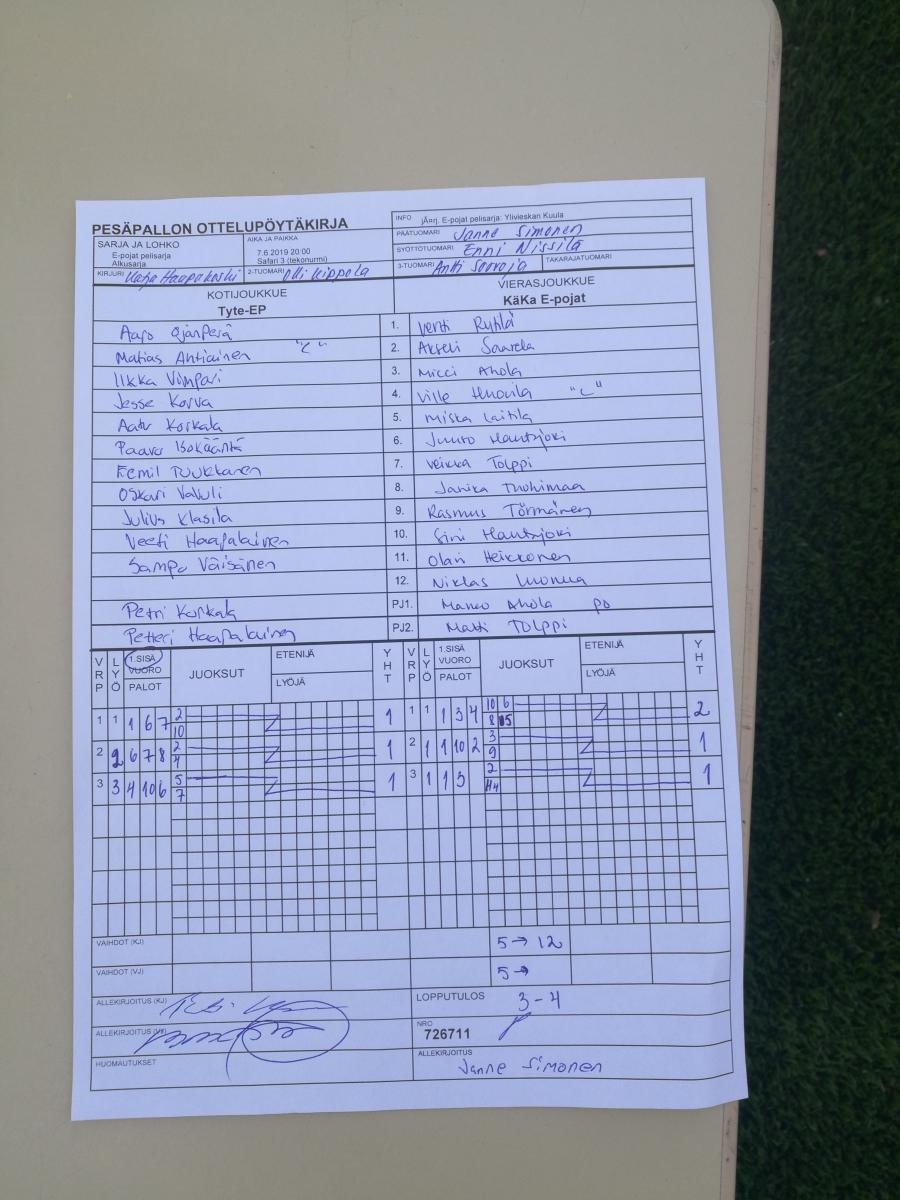 PESÄPALLON OTTELUPÖYTÄKIRJA
INFO jÃ¤rj. E-pojat pelisarja: Ylivieskan Kuula
PÄÄTUOMARI Janne Simonen
SARJA JA LOHKO
E-pojat pelisarja
Alkusarja
AIKA JA PAIKKA
7.6 2019 20:00
Safari 3 (tekonurmi)
SYÖTTÖTUOMARI Enni Nissilä
KIRJURI Katja Haapakoski 2-TUOMARI Olli Kippola 3-TUOMARI Antti Sorvoja TAKARAJATUOMARI
KOTIJOUKKUE VIERASJOUKKUE
Tyte-EP KäKa E-pojat
Aapo Ojanperä 1. Venti Rytilä
Matias Anttiainen "C" 2. Akseli Saarela
Ilkka Vimpari 3. Micci Ahola
Jesse Korva 4. Ville "C"
Aatu Korkala 5. Miska Laitila
Paavo Isokääntä 6. Juuso Hautajoki
Eemil Tuukkanen 7. Veikka Tolppi
Oskari Vakuli 8. Janika Tuohimaa
Julius Klasila 9. Rasmus Törmänen
Veeti Haapalainen 10. Sini Hautajoki
Sampo Väisänen 11. Olavi Heikkonen
12. Niklas
Petri Korkala PJ1. Marko Ahola po
Petteri Haapalainen PJ2. Matti Tolppi
VRP LYÖ 1.SISÄ VUORO PALOT JUOKSUT ETENIJÄ LYÖJÄ YHT VRP LYÖ 1.SISÄ VUORO PALOT JUOKSUT ETENIJÄ LYÖJÄ YHT
1 1 1 6 7 2 1 1 1 1 3 4 10 6 2
10 8 15
2 2 6 7 8 2 1 2 1 1 10 2 3 1
4 9
3 3 4 10 6 5 1 3 1 1 3 2 1
7
VAIHDOT (KJ) 5 → 12
VAIHDOT (VJ) 5 →
ALLEKIRJOITUS (KJ) LOPPUTULOS 3 - 4
ALLEKIRJOITUS (VJ) NRO
726711
HUOMAUTUKSET ALLEKIRJOITUS
Janne Simonen